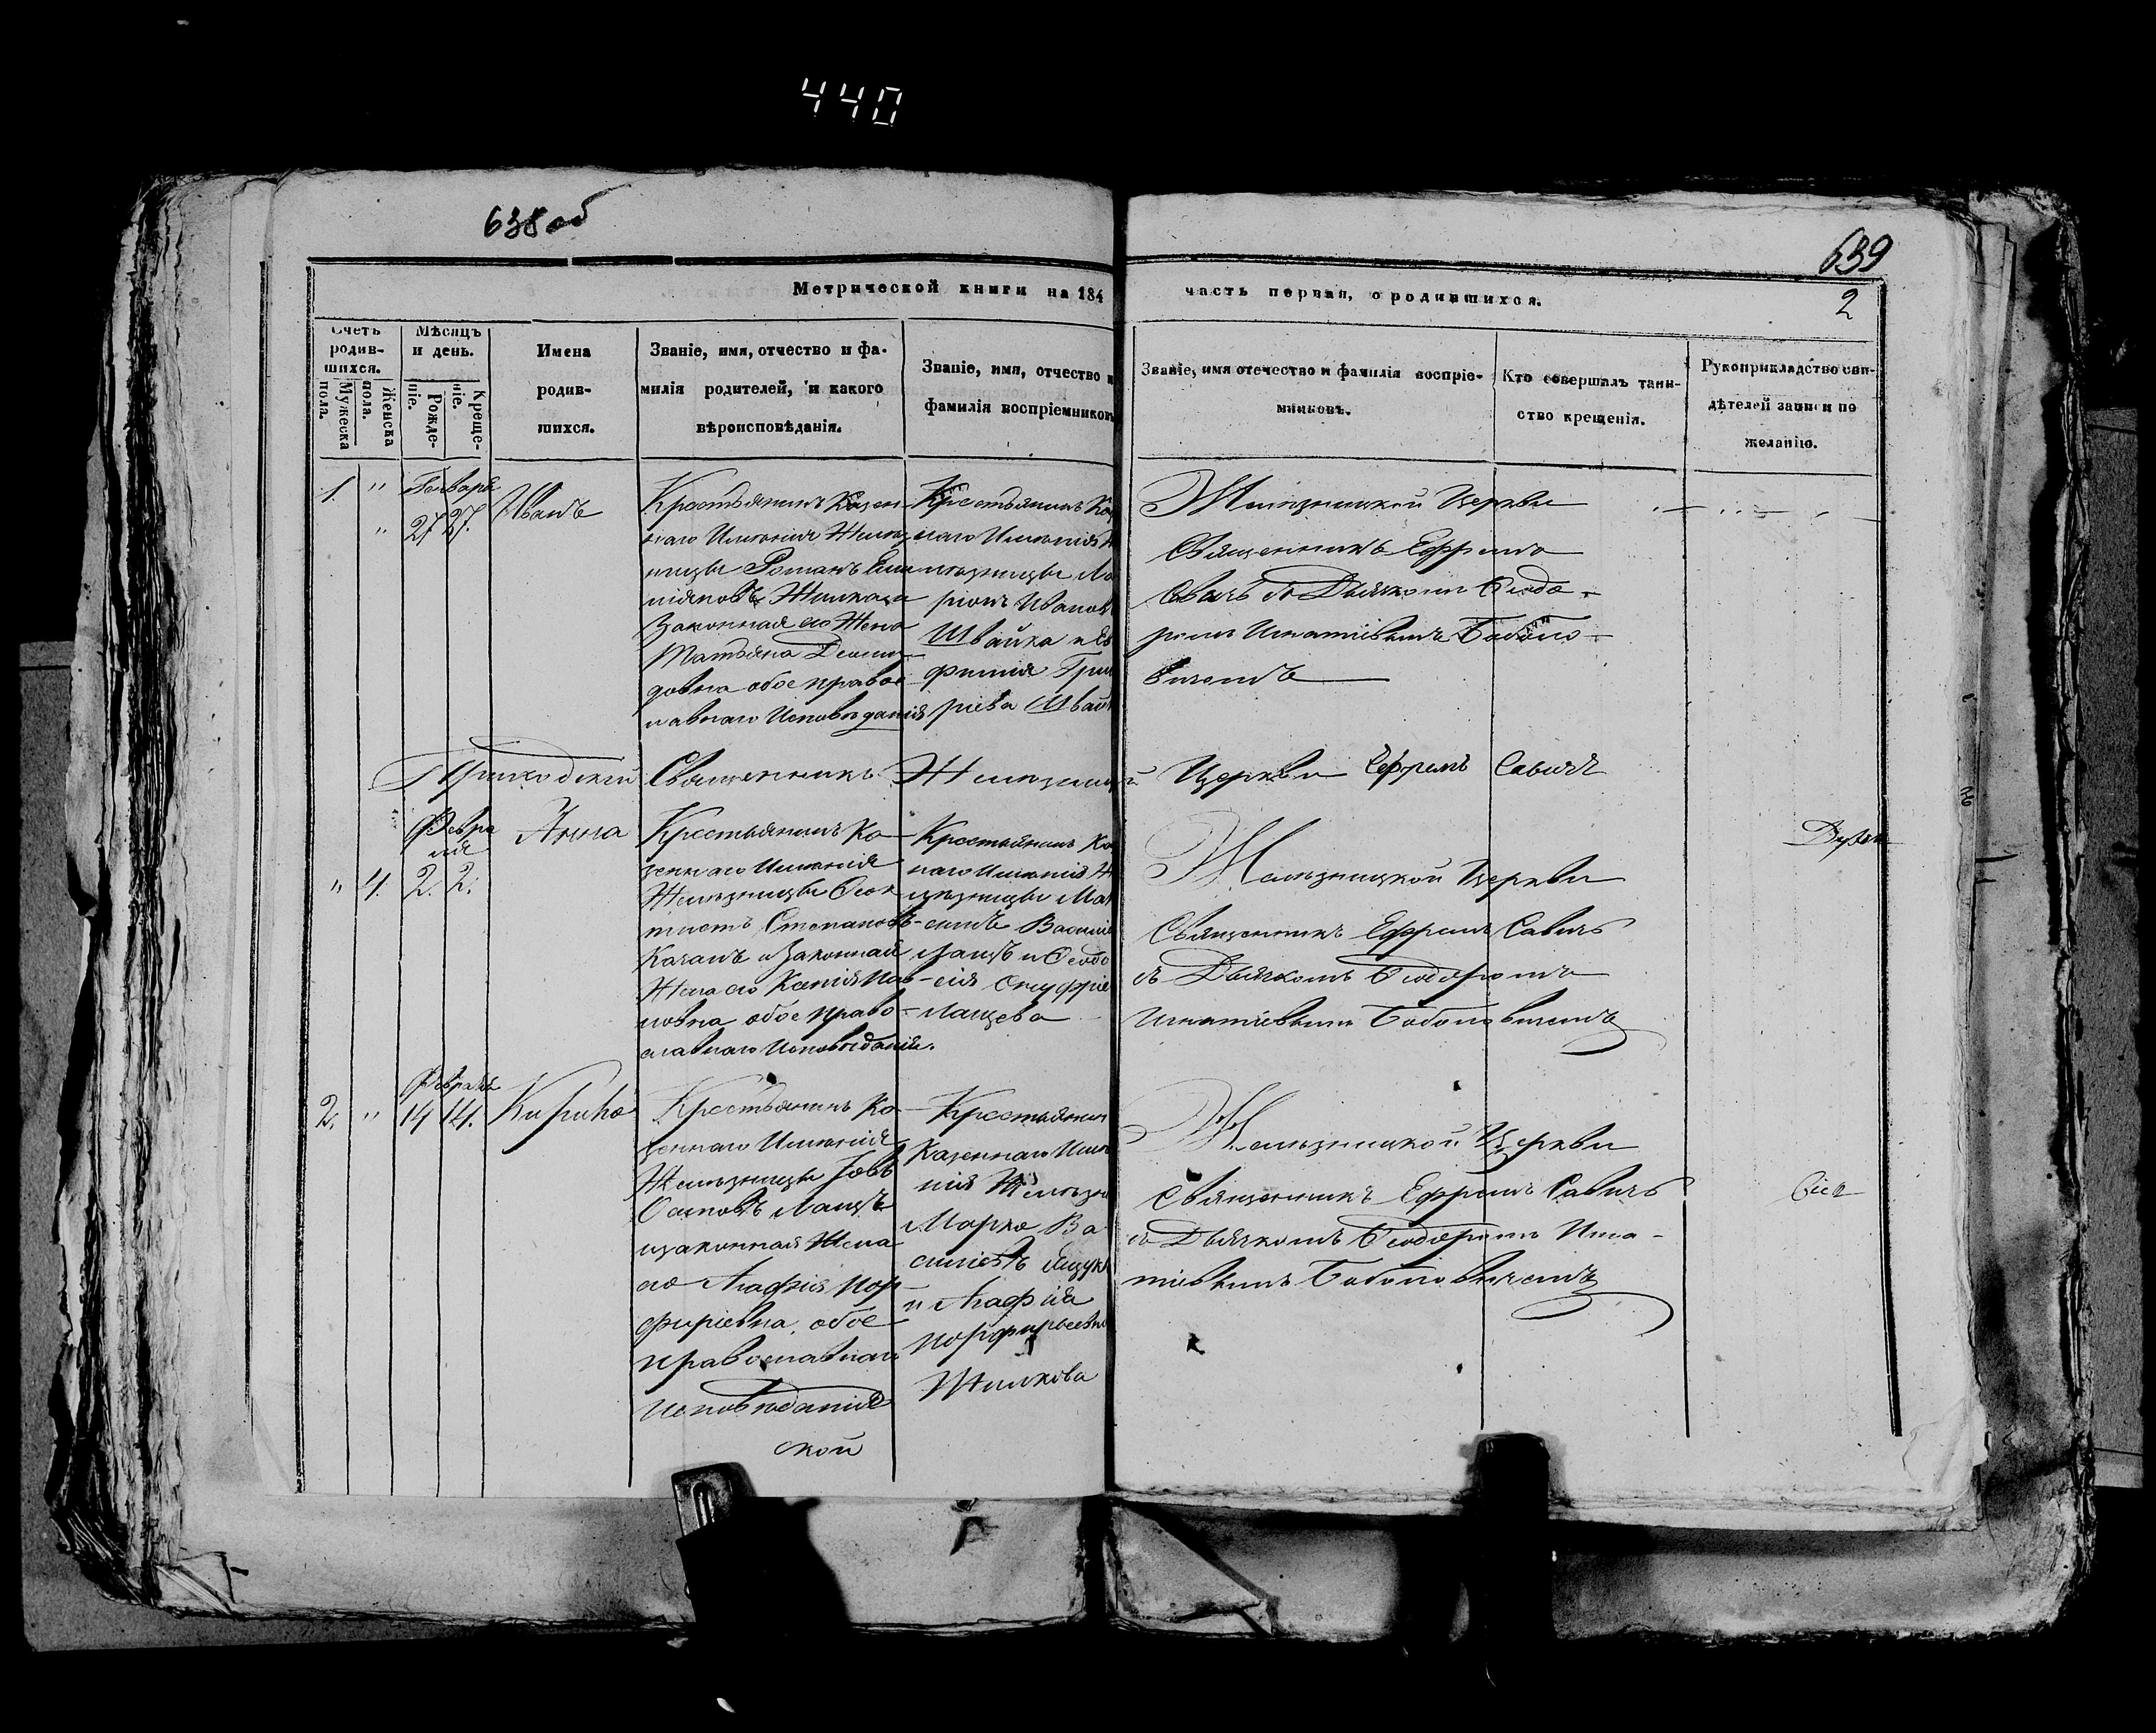 440
638об
639
2
Метрической книги на 184
часть первая, о родившихся.
Счетъ родив-шихся.
Мужеска пола.
Женска пола.
Мѣсяцъ и день.
Рожде-ніе.
Креще-ніе.
Имена
родив-
шихся.
Званіе, имя, отчество и фа-
милія родителей, и какого
вѣроисповѣданія.
Званіе, имя, отчество и
фамилія воспріемниковъ
Званіе, имя отечество и фамилія воспріе-
мниковъ.
Кто совершалъ таин-
ство крещенія.
Рукоприкладство сви-
дѣтелей записи по
желанію.
1. " Генваря
" 27 27. Иванъ
Крестьянинъ Казен-
наго Имѣнія Желѣз
ницы Романъ
Жилкаха
Законная его Жена
Татьяна
довна обое правос
лавнаго Исповѣданія
Крестьянинъ Ка
наго Имѣнія Ж
лѣзницы Ла
ріонъ Иванов
Швайка и Ев
фимія Григ
ріева Швай
Желѣзницкой Церкви
Священникъ Ефремъ
Савичъ съ Дьячкомъ Ѳеодо-
ромъ Игнатіевымъ
вичемъ
Приходскій Священникъ Желѣзниц
й Церкви Ефремъ Савичъ
Февра
ля
" 1. 2. 2.
Анна
Крестьянинъ Ка
зеннаго Имѣнія
Желѣзницы Ѳеок
тистъ Степановъ
Качанъ и Законная
Жена его Ксенія Пав
ловна обое право-
славнаго Исповѣданія.
Крестьянинъ Ка
наго Имѣнія Ж
лѣзницы Ма
Василіе
Лащъ и Ѳеодо
сія Онуфріе
Лащева
Желѣзницкой Церкви
Священникъ Ефремъ Савичъ
съ Дьячкомъ Ѳеодоромъ
Игнатіевымъ
Февраля
2. " 14 14.
Крестьянинъ Ка
зеннаго Имѣнія
Желѣзницы Іовъ
Лащъ
и законная Жена
его Агафія Пор-
фиріевна обое
православнаго
Исповѣданія
ской
Крестьянинъ
Казеннаго Имѣ
нія Желѣзн
Марко Ва
силіевъ
и Агафія
Порфирьевна
Жилкова
Желѣзницкой Церкви
Священникъ Ефремъ Савичъ
съ Дьячкомъ Ѳеодоромъ Игна-
тіевымъ